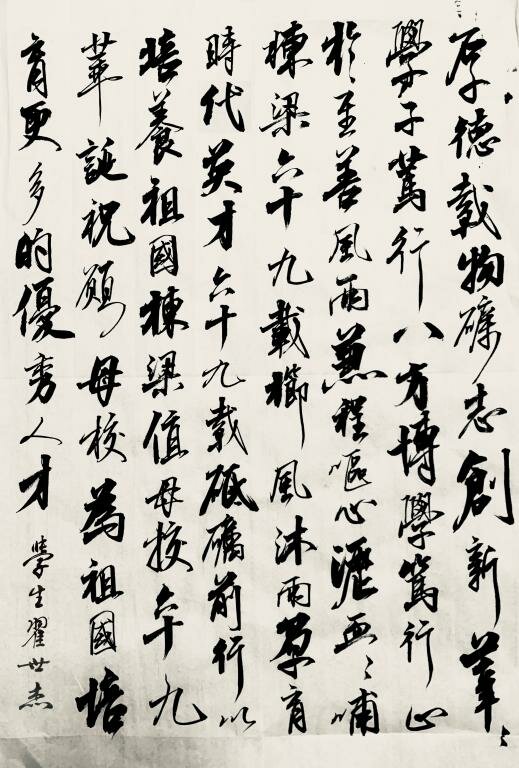 厚德載物礪志創新莘莘
學子篤行八方博學篤行止
於至善風雨兼程嘔心瀝血哺
棟梁六十九載櫛風沐雨孕育
時代英才六十九載砥礪前行以
培養祖國棟梁值母校六十九
華誕祝願母校為祖國培
育更多的優秀人才
學生翟世杰